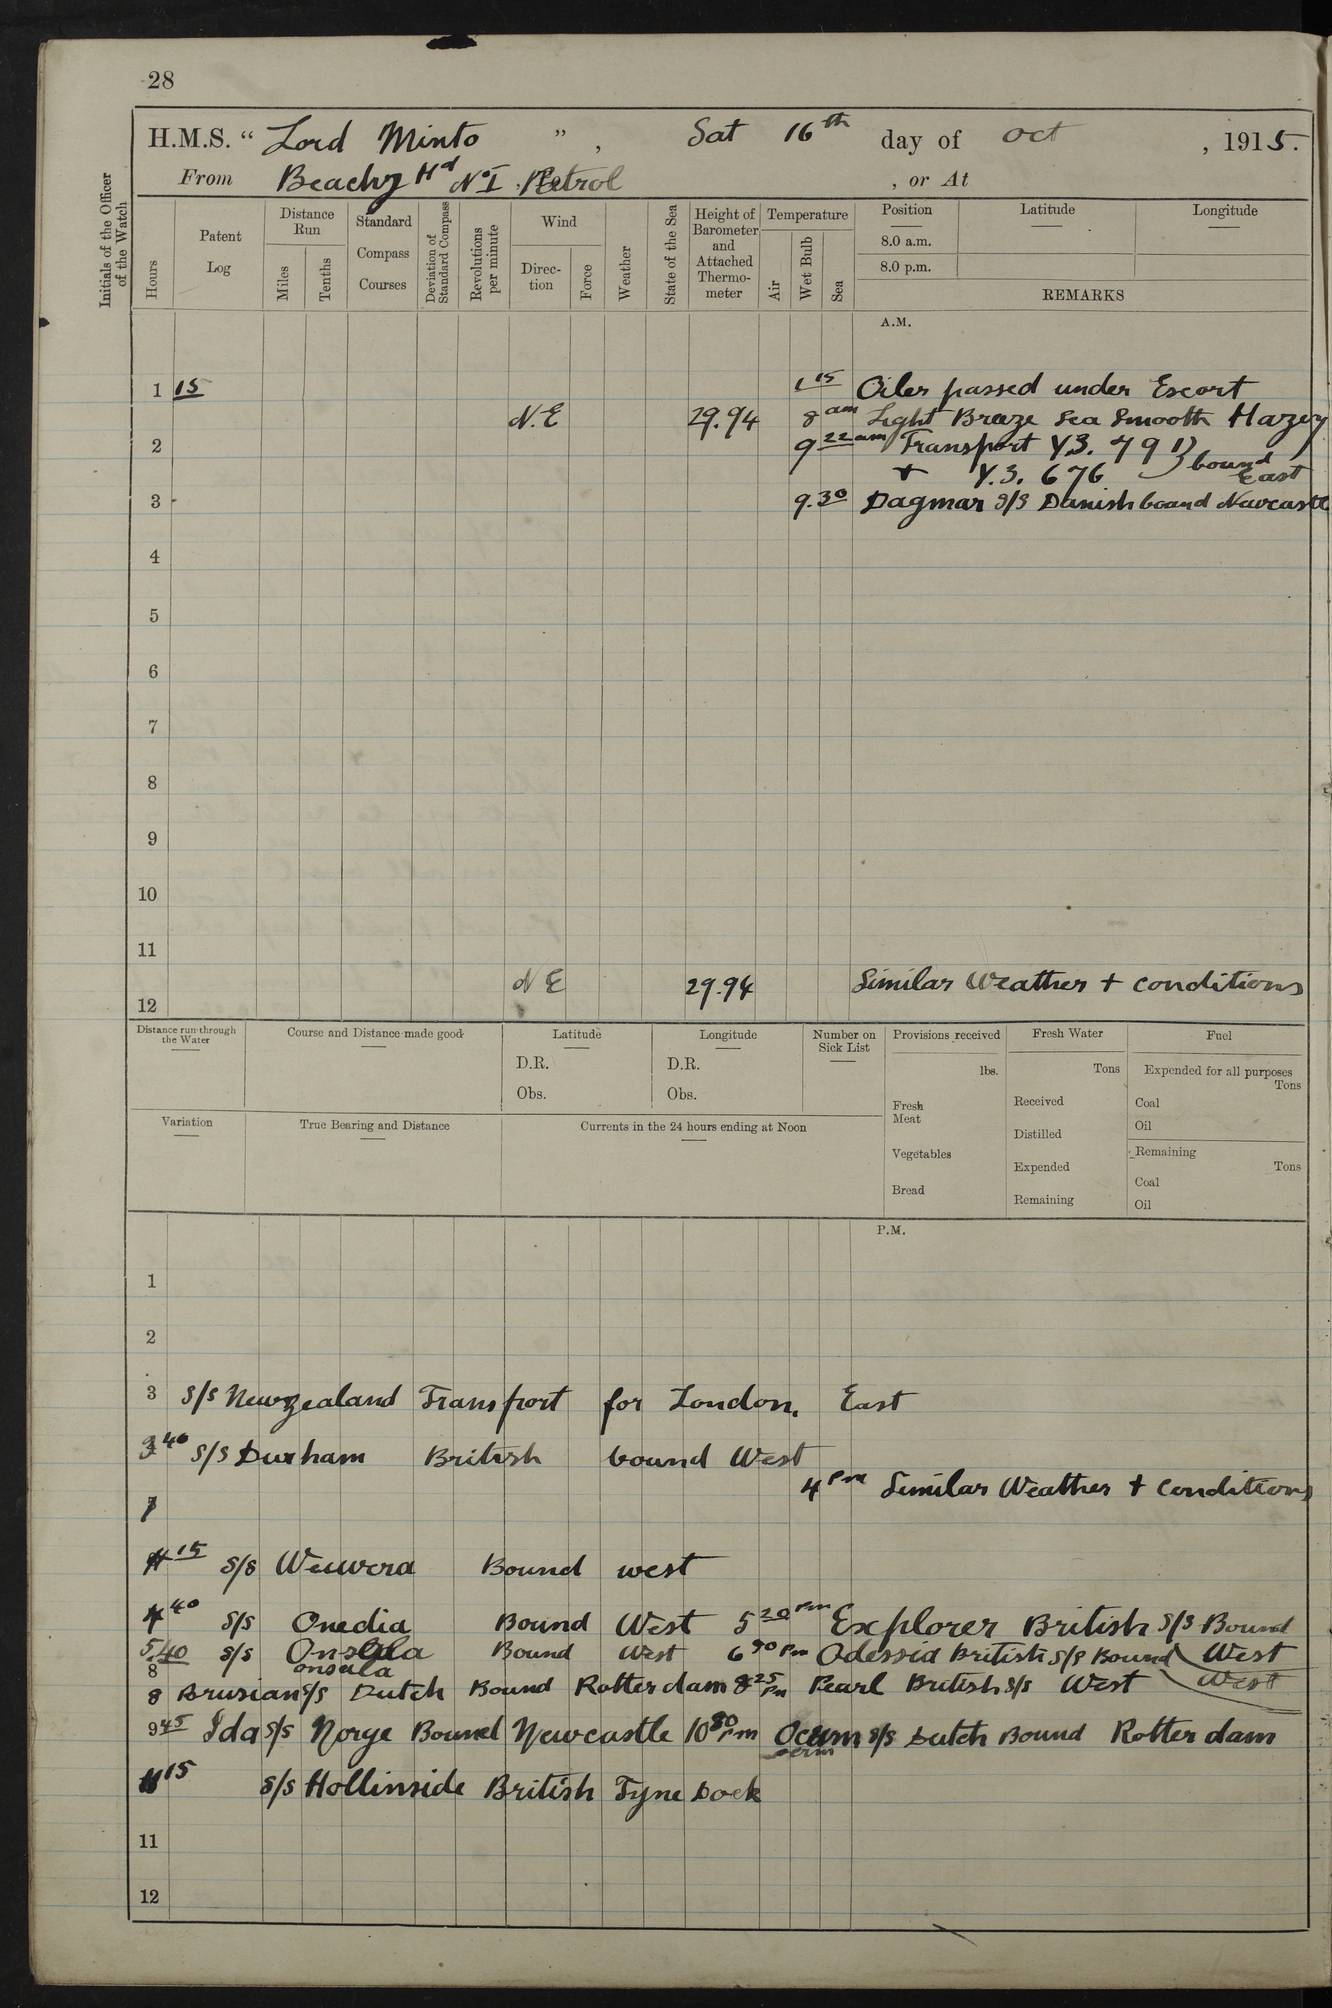 28
H.M.S. “ Lord Minto ”, Sat 16th day of Oct , 1915.
From Beachy Hd No I Patrol , or At
Initials of the Officer of the Watch
Hours
Patent Log
Distance Run
Miles
Tenths
Standard Compass Courses
Deviation of Standard Compass
Revolutions per minute
Wind
Direc-tion
Force
Weather
State of the Sea
Height of Barometer and Attached Thermo-meter
Temperature
Air
Wet Bulb
Sea
Position Latitude Longitude
8.0 a.m.
8.0 p.m.
REMARKS
A.M.
1 15 1 15 Oiler passed under Escort
N.E 29.94 8 am Light Breeze Sea Smooth Hazey
2 9 22 am Transport Y3. 791 } bound
+ Y.3. 676 East
3 9.30 Dagmar S/S Danish bound Newcastle
4
5
6
7
8
9
10
11
N E 29.94 Similar Weather + conditions
12
Distance run through the Water
Course and Distance made good
Latitude
D.R.
Obs.
Longitude
D.R.
Obs.
Number on Sick List
Provisions received
lbs.
Fresh Meat
Vegetables
Bread
Fresh Water
Tons
Received
Distilled
Expended
Remaining
Fuel
Expended for all purposes
Tons
Coal
Oil
Remaining
Tons
Coal
Oil
Variation
True Bearing and Distance
Currents in the 24 hours ending at Noon
P.M.
1
2
3 S/S Newzealand Transport for London. East
3 40 S/S Durham British bound West
4 Pm Similar Weather + conditions
4 15 S/S Bound west
4 40 S/S Onedia Bound West 5 20 Pm Explorer British S/S Bound
5.40 S/S Onsala Bound West 6 30 Pm Odessia British S/S Bound West
8 onsala
8 Brusian S/S Dutch Bound Rotterdam 8 25 Pm Pearl British S/S West West
9 45 Ida S/S Norge Bound Newcastle 10 30 Pm S/S Dutch Bound Rotterdam
11 15 S/S Hollinside British Tyne Dock
11
12